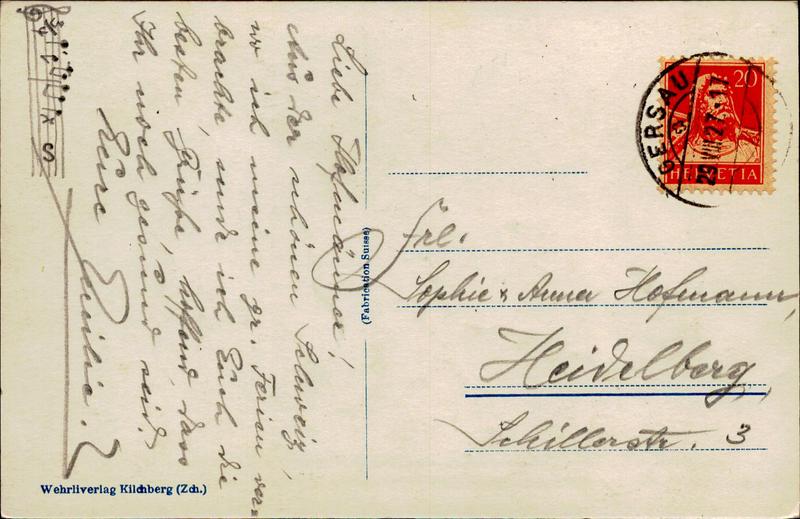 Liebe Hofmänner!
Aus der schönen Schweiz,
wo ich meine gr. Ferien ver-
brachte sende ich Euch die
besten Grüße, hoffend, dass
Ihr noch gesund seid.
Eure
20
HELVETIA
GERSAU
29 VII 27.-17
Frl.
Sophie & Anna Hofmann,
Heidelberg,
Schillerstr. 3
(Fabrication Suisse)
Wehrliverlag Kilchberg (Zch.)